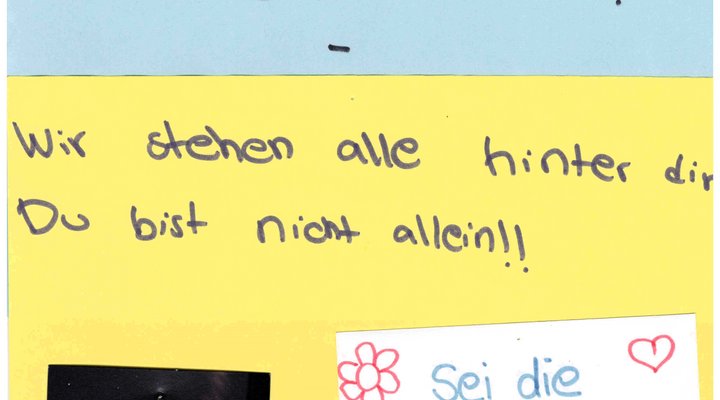 Wir stehen alle hinter dir
Du bist nicht allein!!
Sei die